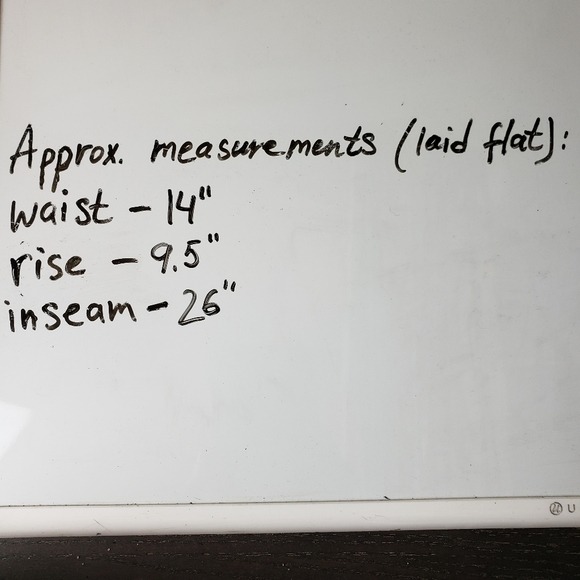 Approx. measurements (laid flat):
waist - 14"
rise - 9.5"
inseam - 26"
U